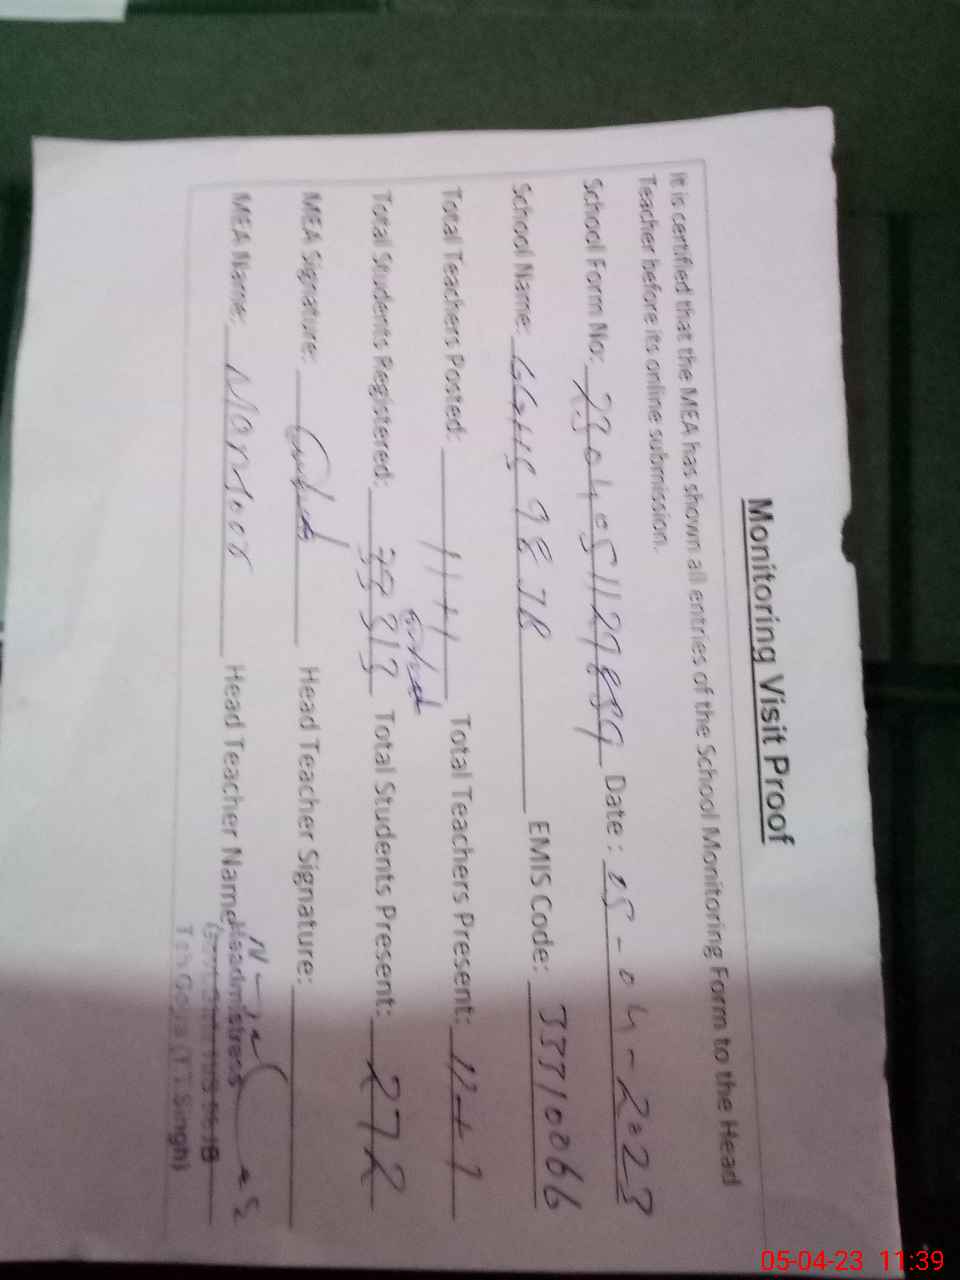 Monitoring Visit Proof
It is certified that the MEA has shown all entries of the School Monitoring Form to the Head
Teacher before its online submission.
School Form No: Date: 05-04-2023
School Name: GGHS 98 JB EMIS Code: 33310066
Total Teachers Posted: 11+1 Total Teachers Present: 11+1
Total Students Registered: 313 Total Students Present: 272
MEA Signature: Head Teacher Signature:
MEA Name: Mansoor Head Teacher Name
Headmistress
Teh Gojra (T.T.Singh)
05-04-23 11:39